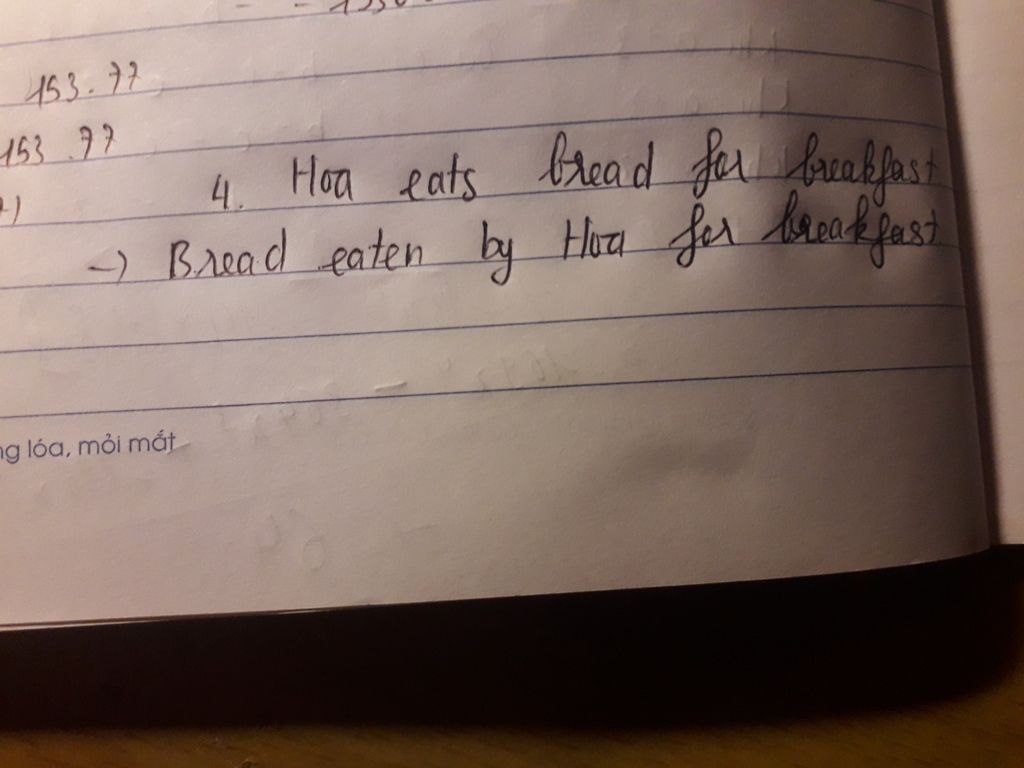 153.77
153.77
4. Hoa eats bread for breakfast
→ Bread eaten by Hoa for breakfast
ng lóa, mỏi mắt